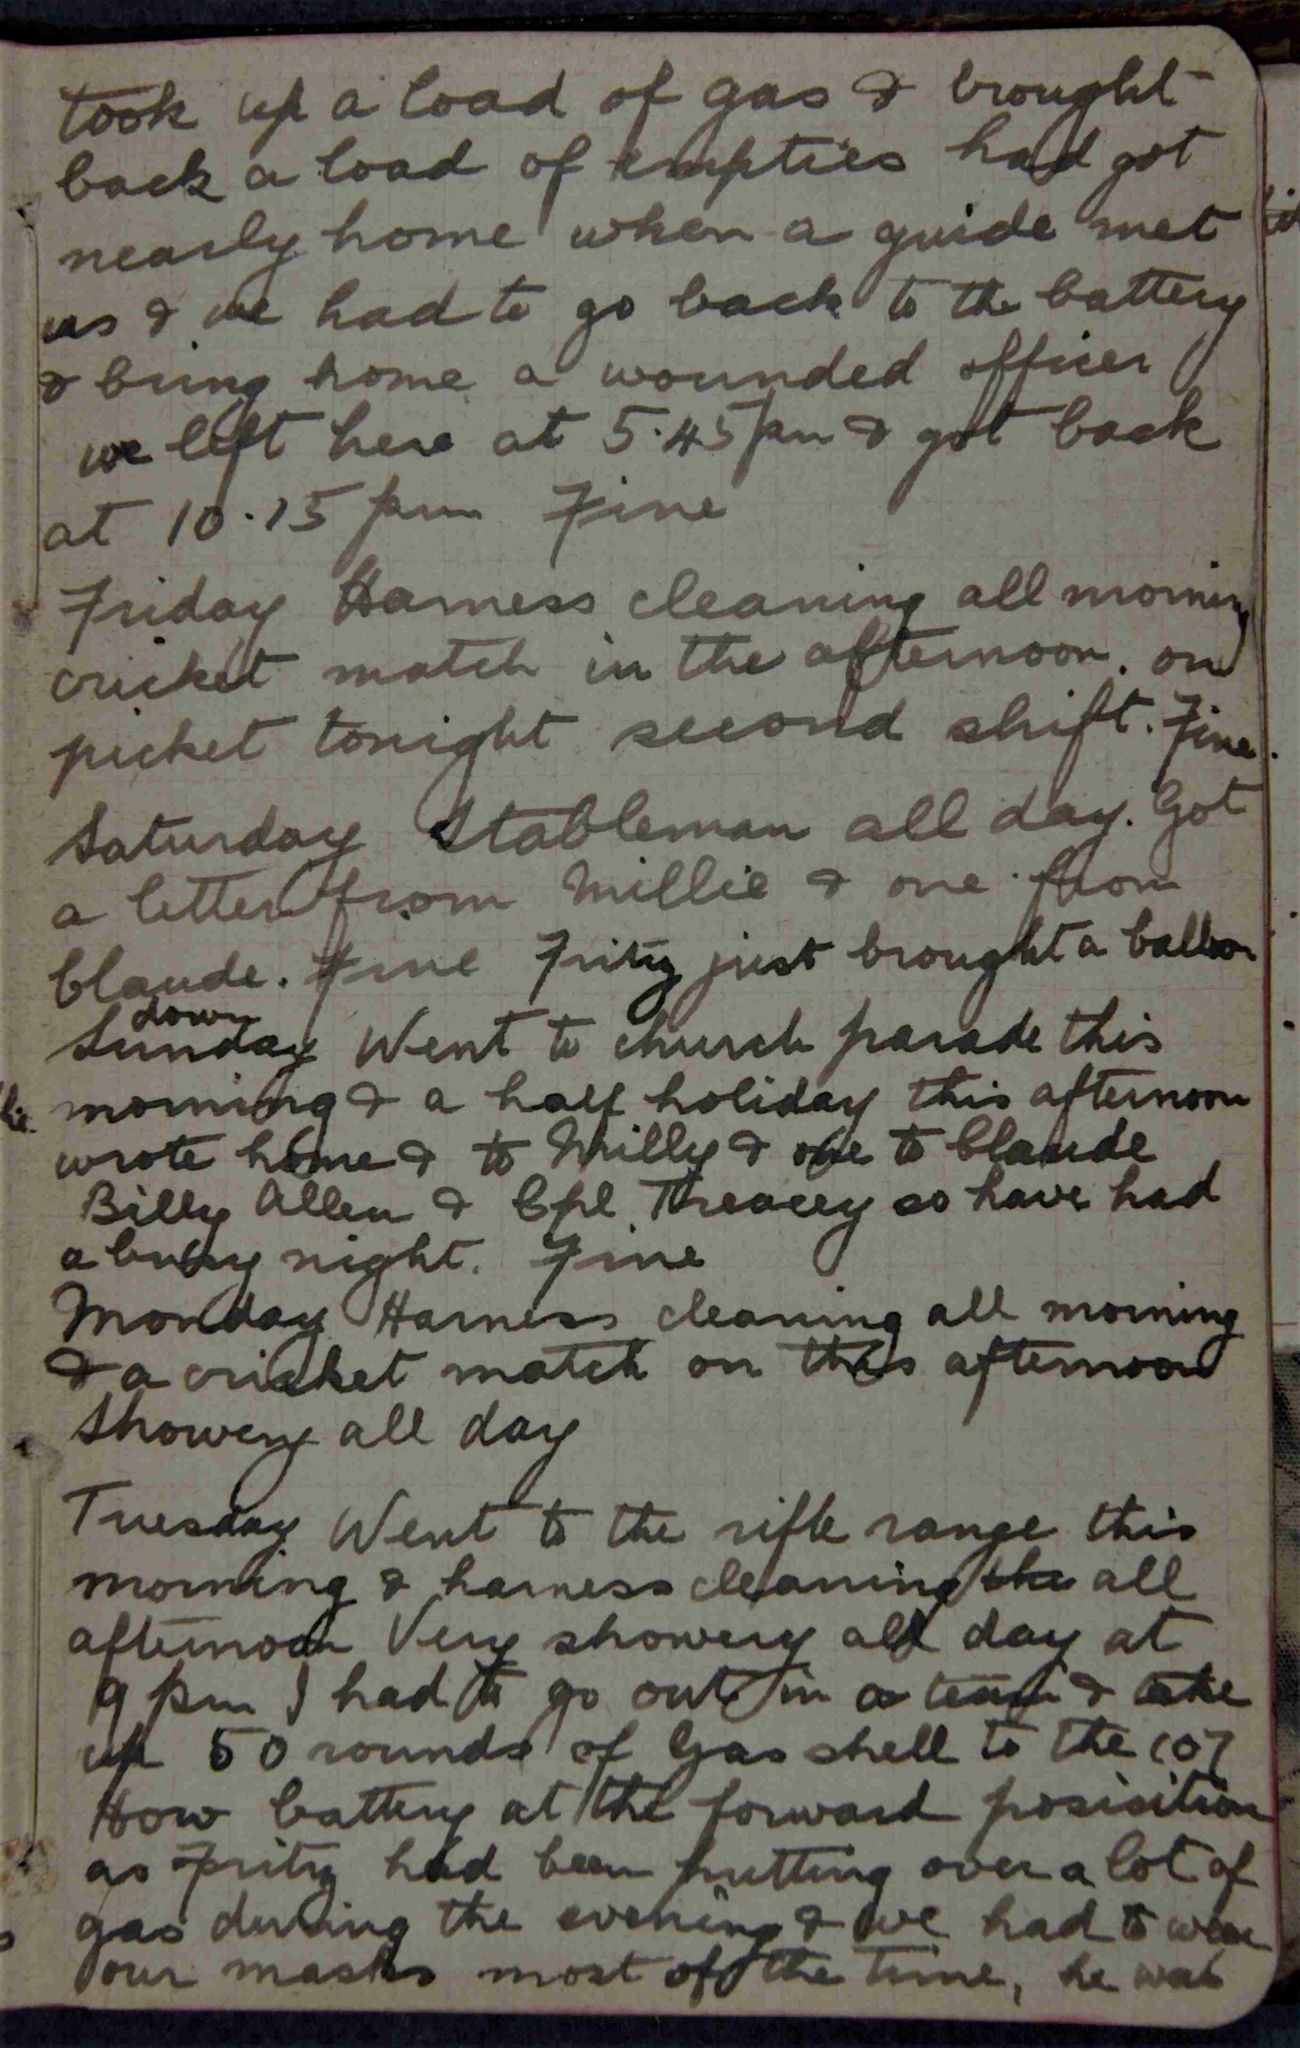 took up a load of gas & brought
back a load of empties had got
nearly home when a guide met
us & we had to go back to the battery
& bring home a wounded officer
we left here at 5.45 pm & got back
at 10.15 pm Fine
Friday Harness cleaning all morning
cricket match in the afternoon. on
picket tonight second shift. Fine.
Saturday Stableman all day. Got
a letter from Millie & one from
Claude. Fine Fritz just brought a balloon
down
Sunday Went to church parade this
morning & a half holiday this afternoon
wrote home & to Milly & one to Claude
Billy Allen & Cpl Treacey so have had
a busy night. Fine
Monday Harness cleaning all morning
& a cricket match on this afternoon
Showery all day
Tuesday Went to the rifle range this
morning & harness cleaning the all
afternoon Very showery all day at
9 pm I had to go out in a team & take
up 50 rounds of Gas shell to the 107
How battery at the forward posisition
as Fritz had been putting over a lot of
gas during the evening & we had to wear
our masks most of the time, he was